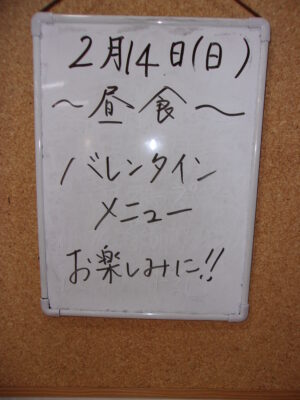 2月14日(日)
～昼食～
バレンタイン
メニュー
お楽しみに!!